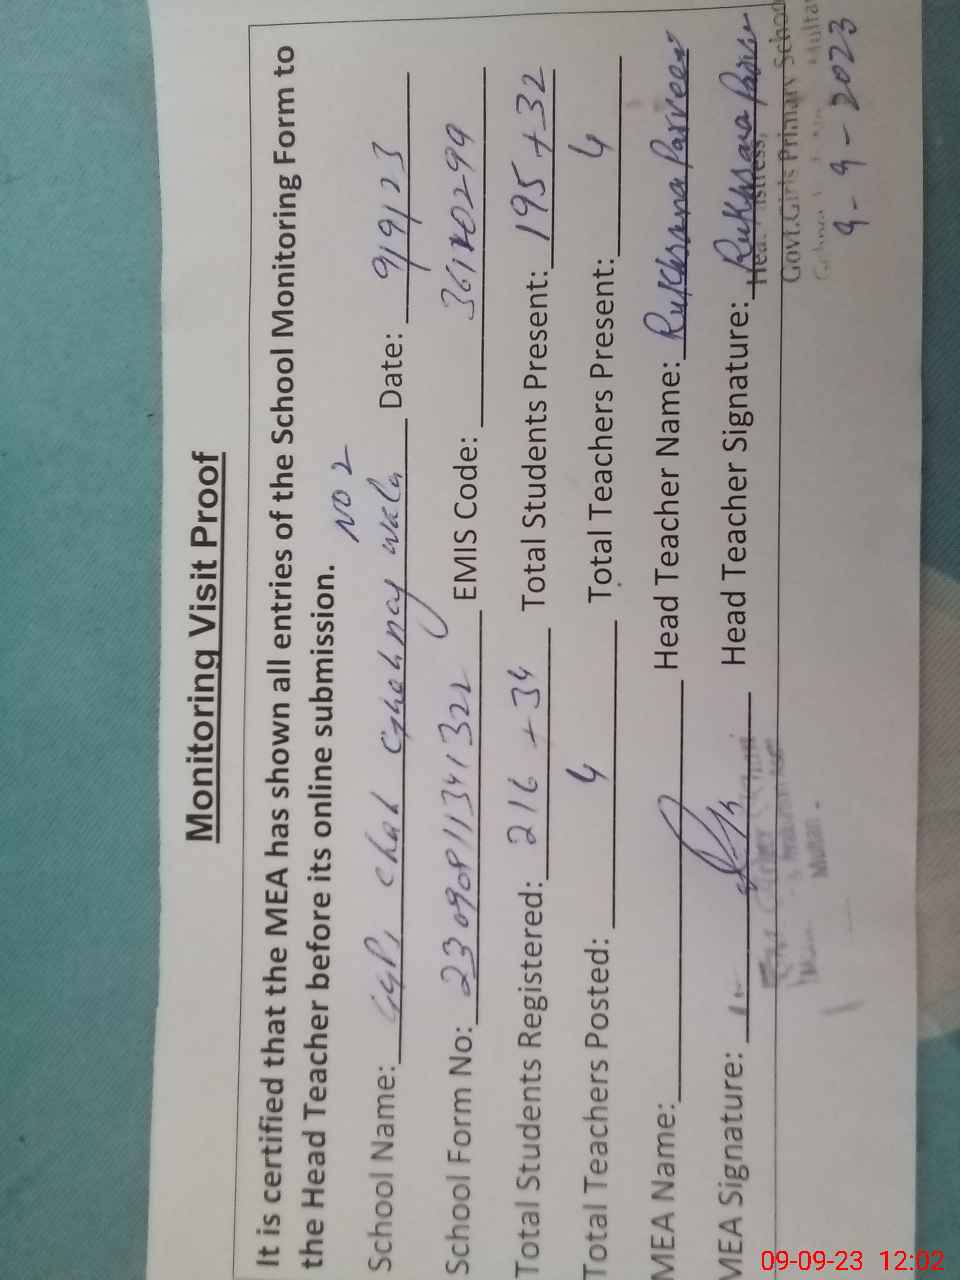 Monitoring Visit Proof
It is certified that the MEA has shown all entries of the School Monitoring Form to
the Head Teacher before its online submission.
NO 2
School Name: GGPS Chah Wala Date: 9/9/23
School Form No: 23090911341322 EMIS Code:
Total Students Registered: 216 + 34 Total Students Present: 195 + 32
Total Teachers Posted: 4 Total Teachers Present: 4
MEA Name: Head Teacher Name: Rukhsana Parveen
MEA Signature: Head Teacher Signature: Rukhsana Parveen
Head Mistress,
Govt. Girls Primary School
Multan
9 - 9 - 2023
Multan -
09-09-23 12:02